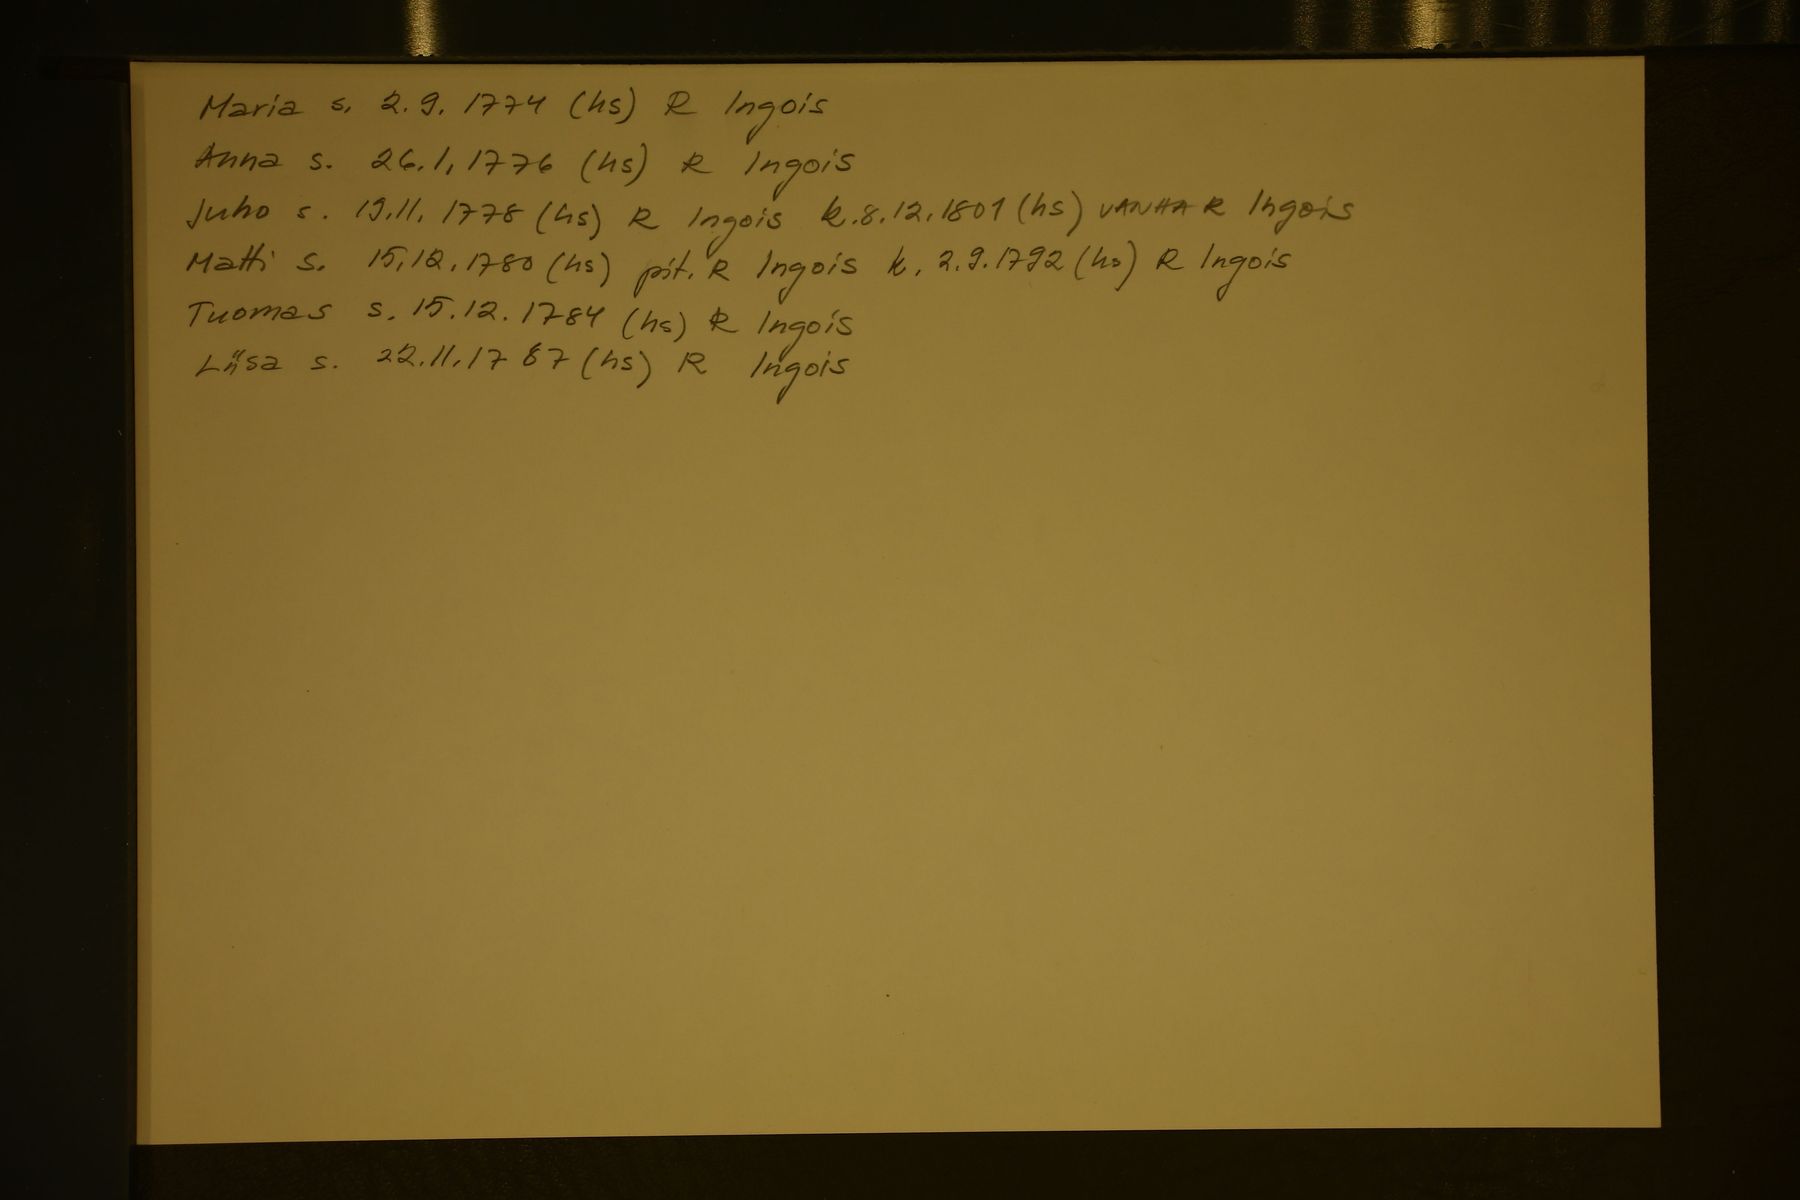 Maria s. 2.9.1774 (hs) R Ingois
Anna s. 26.1.1776 (hs) R Ingois
Juho s. 19.11.1778 (hs) R Ingois k.8.12.1801 (hs) VANHA R Ingois
Matti s. 15.12.1780 (hs) pit. R Ingois k. 2.9.1792 (hs) R Ingois
Tuomas s. 15.12.1784 (hs) R Ingois
Liisa s. 22.11.1787 (hs) R Ingois